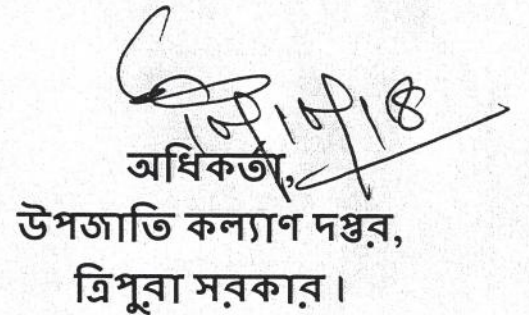 অধিকর্তা,
উপজাতি কল্যাণ দপ্তর,
ত্রিপুরা সরকার।